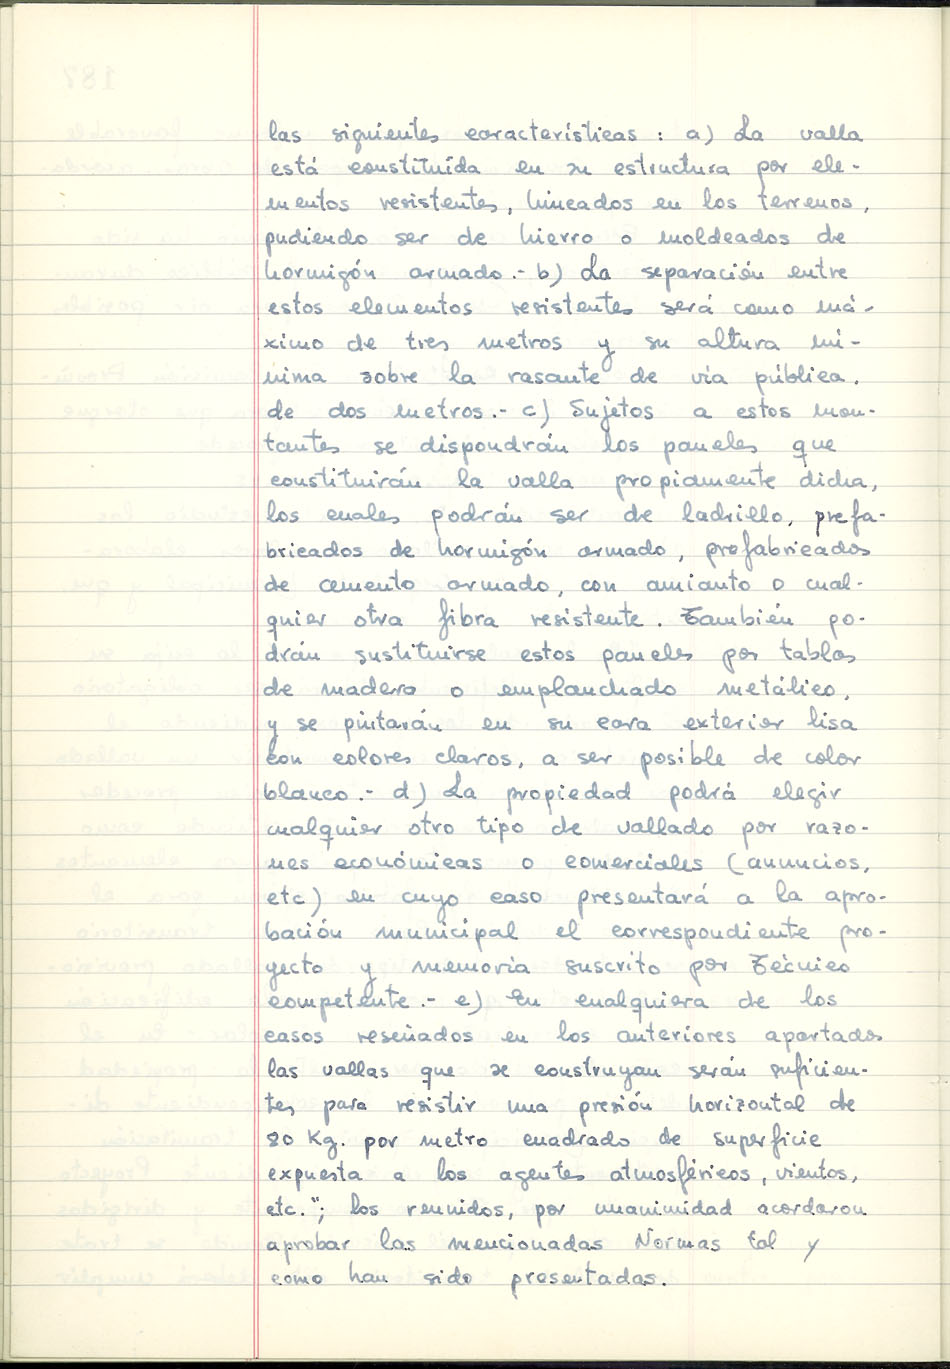 las siguientes características : a) La valla
está constituída en su estructura por ele-
mentos resistentes, hincados en los terrenos,
pudiendo ser de hierro o moldeados de
hormigón armado.- b) La separación entre
estos elementos resistentes será como má-
ximo de tres metros y su altura mí-
nima sobre la rasante de vía pública,
de dos metros.- c) Sujetos a estos mon-
tantes se dispondrán los paneles que
constituirán la valla propiamente dicha,
los cuales podrán ser de ladrillo, prefa-
bricados de hormigón armado, prefabricados
de cemento armado, con amianto o cual-
quier otra fibra resistente. También po-
drán sustituirse estos paneles por tablas
de madera o emplanchado metálico,
y se pintarán en su cara exterior lisa
con colores claros, a ser posible de color
blanco.- d) La propiedad podrá elegir
cualquier otro tipo de vallado por razo-
nes económicas o comerciales (anuncios,
etc) en cuyo caso presentará a la apro-
bación municipal el correspondiente pro-
yecto y memoria suscrito por Técnico
competente.- e) En cualquiera de los
casos reseñados en los anteriores apartados
las vallas que se construyan serán suficien-
tes para resistir una presión horizontal de
80 Kg. por metro cuadrado de superficie
expuesta a los agentes atmosféricos, vientos,
etc."; los reunidos, por unanimidad acordaron
aprobar las mencionadas Normas tal y
como han sido presentadas.